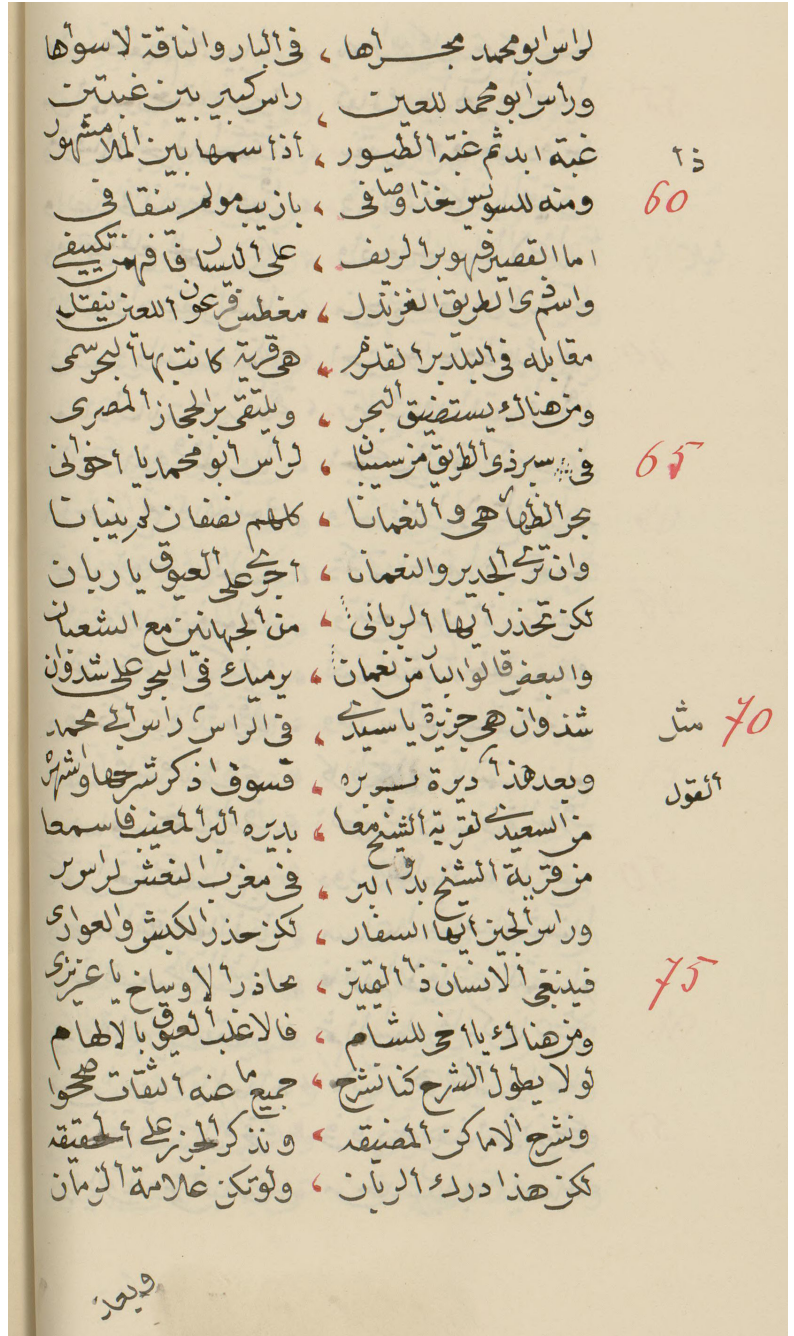 لراس ابو محمد مجراها ، في البار والناقة لا سواها
وراس ابو محمد للعين ، راس كبير بين غبتين
ذا غبة ابد ثم غبة الطيور ، اذا سمها بين الملا مشهور
60 ومنه للسويس خذ اوصافي ، بازيب مولم ينقافى
اما القصير فهو بر الريف ، على اللسان فافهمن تكييفى
واسم ذى الطريق الغرندل ، مغطس فرعون اللعين ينقل
مقابله في البلد بر القلزم ، هي قرية كانت بها البحر سمى
ومن هناك يستضيق البحر ، ويلتقى بر الحجاز المصرى
65 في سير ذى الطريق من سيبان ، لراس ابو محمد يا اخوانى
بحر الظهار هي والنعمانا ، كلهم نصفان لمرينبانا
وان ترى الجدير والنعمان ، اجرى على العيوق يا ربان
لكن تحذر ايها الربانى ، من الجهاتين مع الشعبان
والبعض قالوا البا من نعمان ، يرميك في البحر على شدوان
70 مثل شدوان هي جزيرة يا سيدى ، في الراس راس ابي محمد
القول وبعد هذا ديرة يسيره ، فسوف اذكر شرحها واشهره
من السعيدى لقرية الشيخ معا ، بديره البر المغيب فاسمعا
من قرية الشيخ بدو البر ، في مغرب النعش لراس بر
وراس الجين ايها السفار ، لكن حذر الكبش والعوارى
75 فينبغى الانسان ذا التمييز ، يحاذر الاوساخ يا عزيزى
ومن هناك يا اخى للشام ، فالاغلب العيوق بالالهام
لولا يطول الشرح كنا نشرح ، جميع ما عنه الثقات صححوا
ونشرح الاماكن المضيقه ، ونذكر الحزر على الحقيقه
لكن هذا درك الربان ، ولو تكن علامة الزمان
وبعد